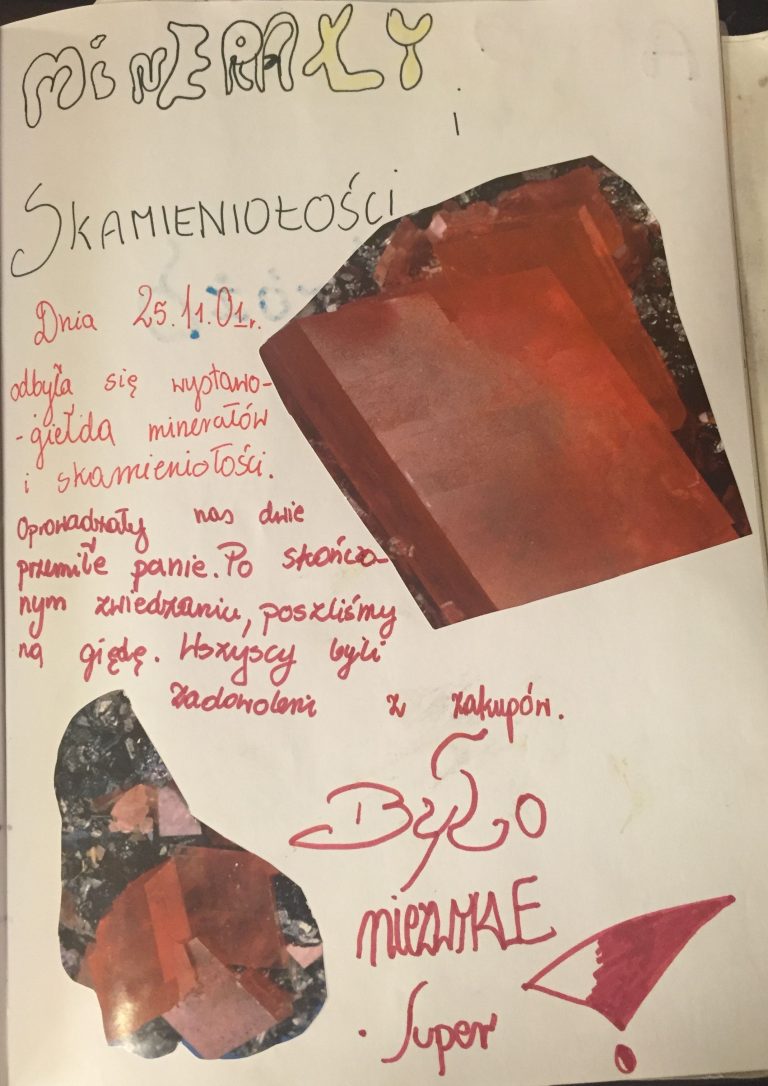 MiNERAŁY
i
SKAMIENIOŁOŚCi
Dnia 25.11.01r.
odbyła się wystawo-
-giełda minerałów
i skamieniołości.
Oprowadzały nas dwie
przemiłe panie. Po skończo-
nym zwiedzaniu, poszliśmy
na giędę. Wszyscy byli
zadowoleni z zakupów.
Było
niezwykLE
Super!